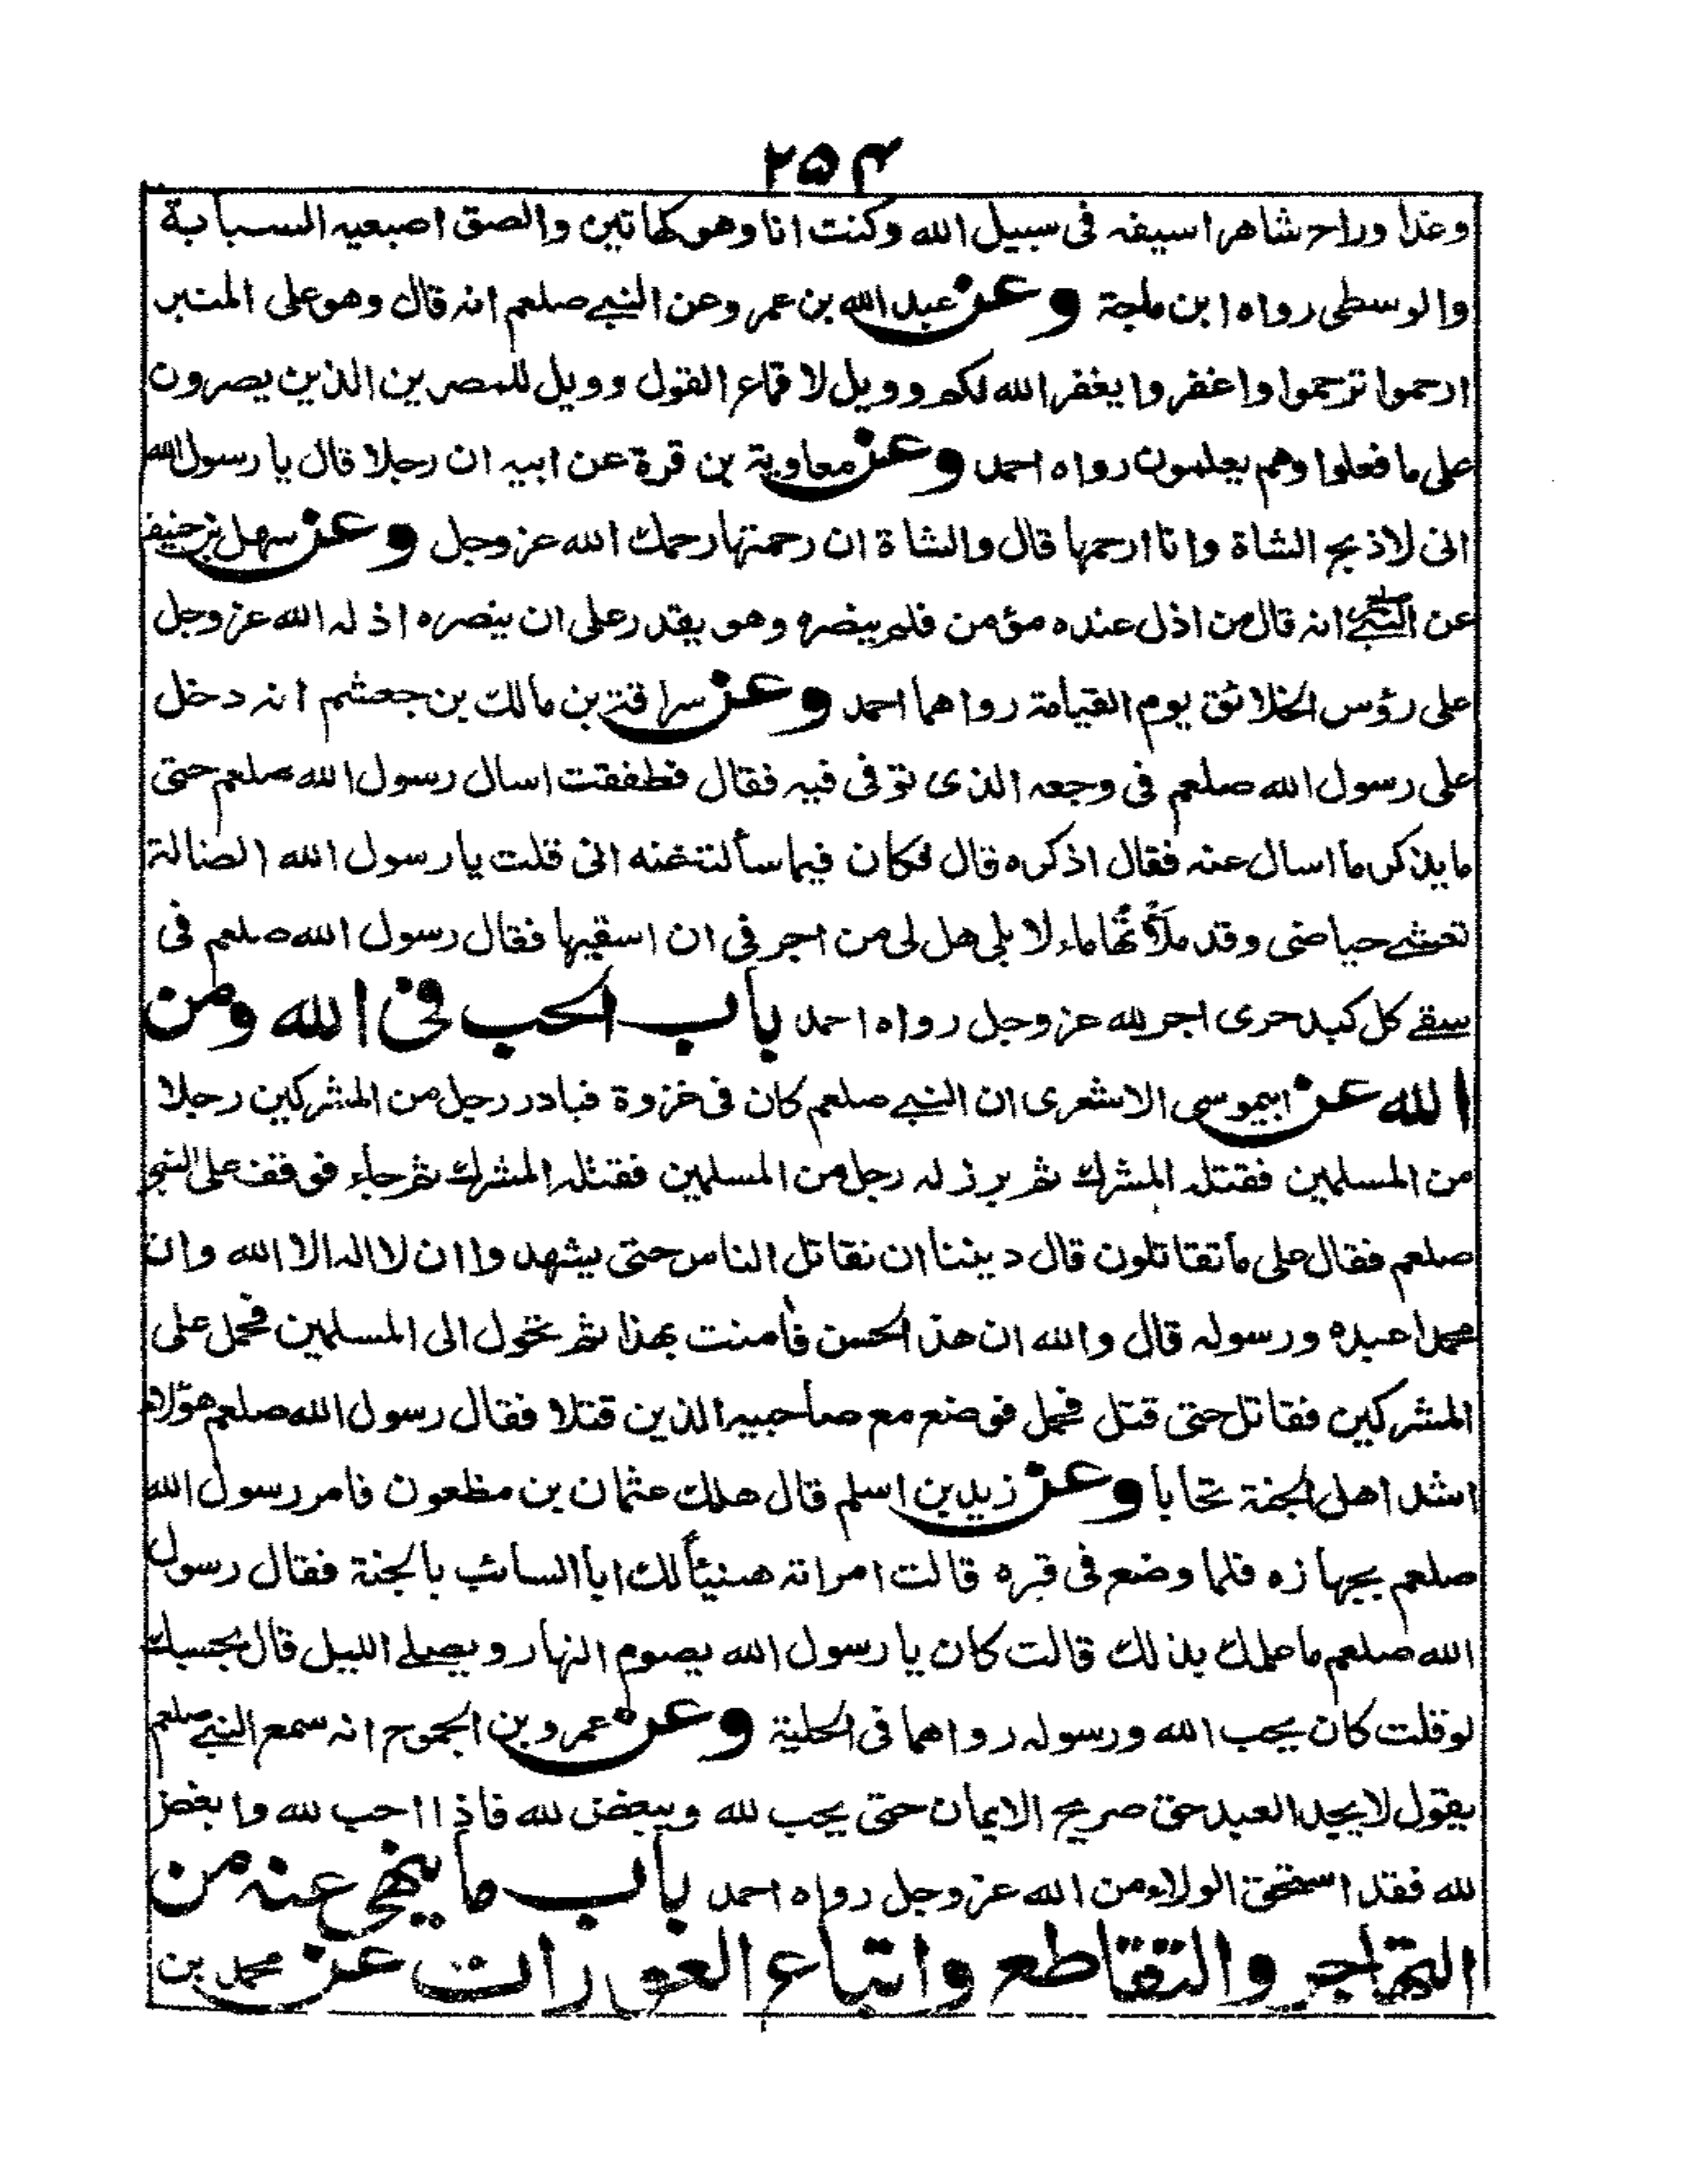 ٢٥٤
وغدا وراح شاهرا سيفه فى سبيل الله وكنت انا وهو كهاتين والصق اصبعيه السبابة
والوسطى رواه ابن ماجة وعن عبد الله بن عمر وعن النبي صلعم انه قال وهو على المنبر
ارحموا ترحموا واغفروا يغفر الله لكم وويل لاقماع القول وويل للمصرين الذين يصرون
على ما فعلوا وهم يعلمون رواه احمد وعن معاوية بن قرة عن ابيه ان رجلا قال يا رسول الله
انى لاذبح الشاة وانا ارحمها قال والشاة ان رحمتها رحمك الله عز وجل وعن سهل بن حنيف
عن النبي صلعم انه قال من اذل عنده مؤمن فلم ينصره وهو يقدر على ان ينصره اذله الله عز وجل
على رؤس الخلائق يوم القيامة رواهما احمد وعن سراقة بن مالك بن جعشم انه دخل
على رسول الله صلعم فى وجعه الذى توفى فيه فقال فطفقت اسال رسول الله صلعم حتى
ما يذكر ما اسال عنه فقال اذكره قال فكان فيما سألته عنه انى قلت يا رسول الله الضالة
تغشى حياضى وقد ملأتها ماء لابلى هل لى من اجر فى ان اسقيها فقال رسول الله صلعم فى
سقے كل كبد حرى اجر لله عز وجل رواه احمد باب الحب فى الله ومن
الله عن ابيموسى الاشعرى ان النبي صلعم كان فى غزوة فبادر رجل من المشركين رجلا
من المسلمين فقتله المشرك ثم برز له رجل من المسلمين فقتله المشرك ثم جاء فوقف على النبي
صلعم فقال على ما تقاتلون قال ديننا ان نقاتل الناس حتى يشهدوا ان لا اله الا الله وان
محمدا عبده ورسوله قال والله ان هذا لحسن فأمنت بهذا ثم تحول الى المسلمين فحمل على
المشركين فقاتل حتى قتل فحمل فوضع مع صاحبيه الذين قتلا فقال رسول الله صلعم هؤلاء
اشد اهل الجنة تحابا وعن زيد بن اسلم قال هلك عثمان بن مظعون فامر رسول الله
صلعم بجهازه فلما وضع فى قبره قالت امراته هنيئاً لك ابا السائب بالجنة فقال رسول
الله صلعم ما علمك بذلك قالت كان يا رسول الله يصوم النهار ويصلے الليل قال بحسبك
لو قلت كان يحب الله ورسوله رواهما فى الحلية وعن عمرو بن الجموح انه سمع النبي صلعم
يقول لا يجد العبد حق صريح الايمان حتى يحب لله ويبغض لله فاذا احب لله وابغض
لله فقد استحق الولاء من الله عز وجل رواه احمد باب ما ينهى عنه من
التهاجر والتقاطع واتباع العورات عن محمد بن